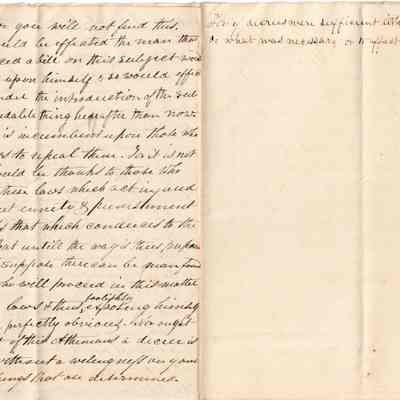 you will not find this.
be effected the man that
a bill on this subject
upon himself & so would
the introduction of the sub
thing hereafter than now
is incumbent upon those who
to repeal them. For it is not
be thanks to those who
these laws which act injured
enmity & punishment
that which conduces to the
that untill the way is thus
suppose there can be man found
who will proceed in this matter
foolishly
laws & thus exposing himself
perfectly obvious. Nor ought
of this Athenians a decree is
without a willingness on your
things that are determined
For if decrees were sufficient
what was necessary or to effect